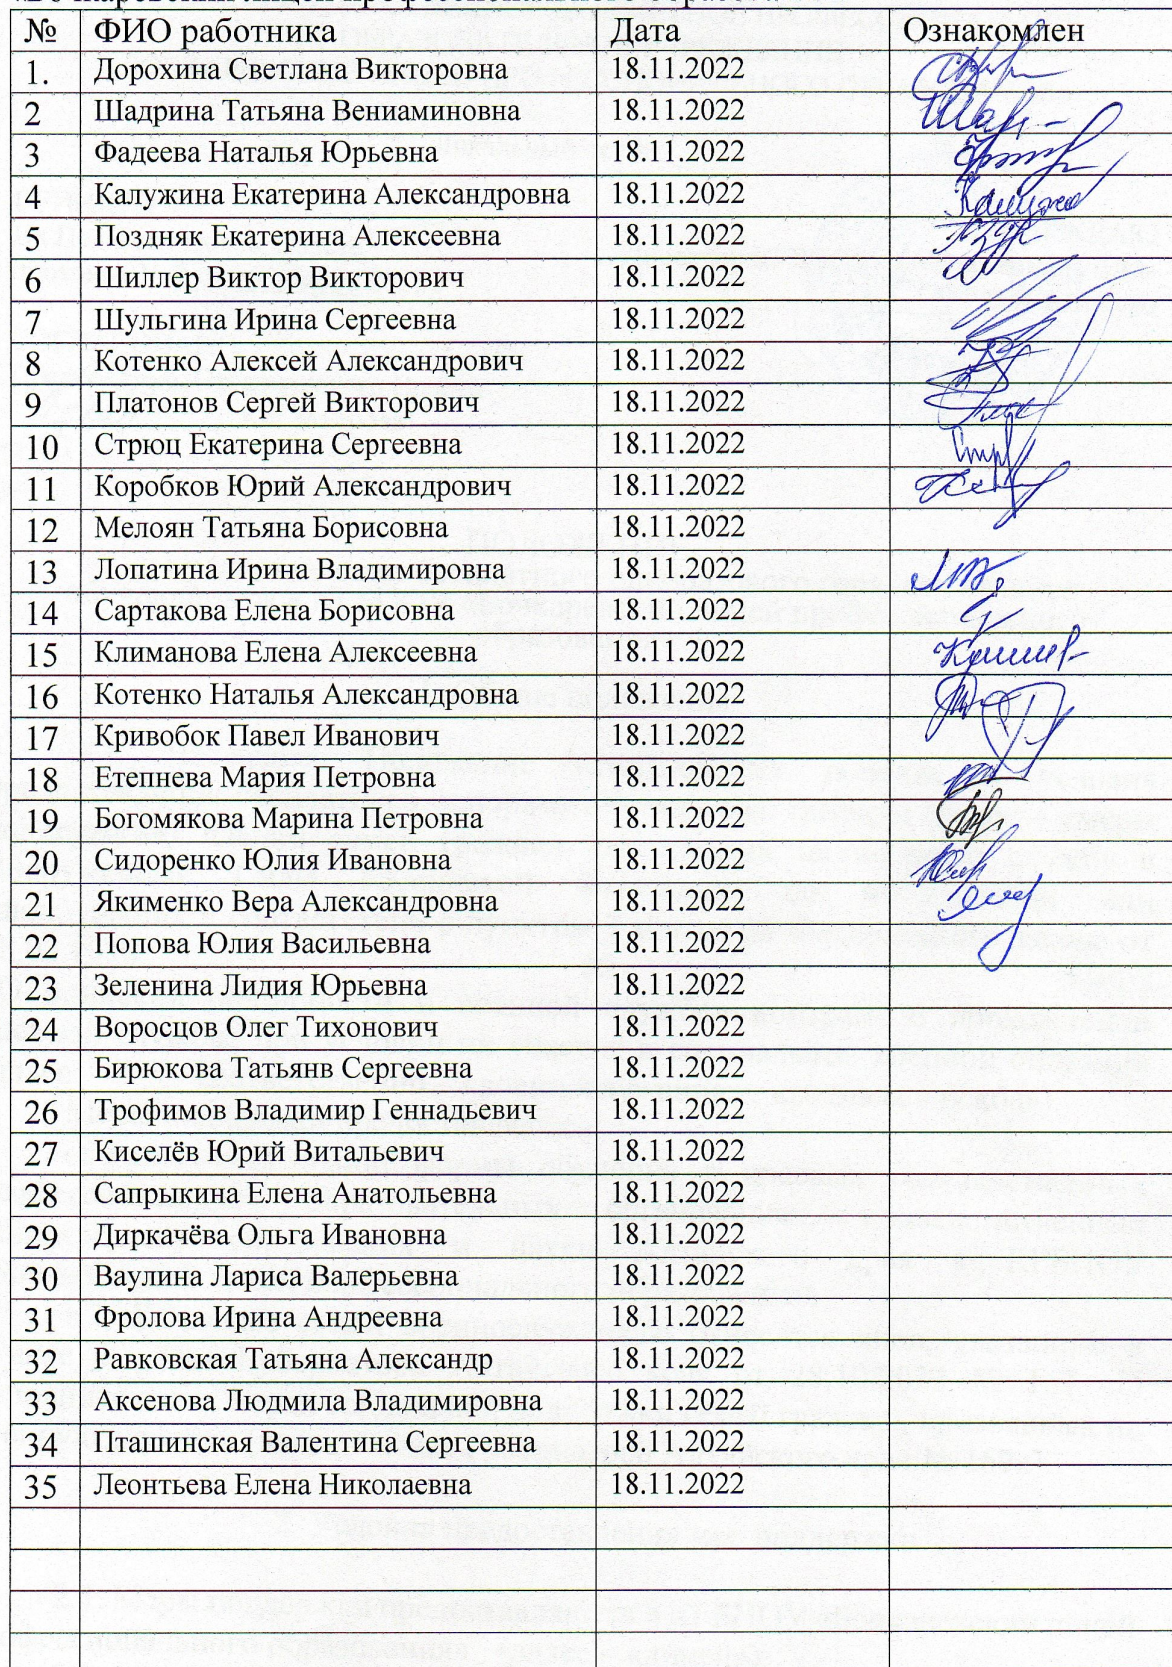 № ФИО работника Дата Ознакомлен
1. Дорохина Светлана Викторовна 18.11.2022
2 Шадрина Татьяна Вениаминовна 18.11.2022
3 Фадеева Наталья Юрьевна 18.11.2022
4 Калужина Екатерина Александровна 18.11.2022
5 Поздняк Екатерина Алексеевна 18.11.2022
6 Шиллер Виктор Викторович 18.11.2022
7 Шульгина Ирина Сергеевна 18.11.2022
8 Котенко Алексей Александрович 18.11.2022
9 Платонов Сергей Викторович 18.11.2022
10 Стрюц Екатерина Сергеевна 18.11.2022
11 Коробков Юрий Александрович 18.11.2022
12 Мелоян Татьяна Борисовна 18.11.2022
13 Лопатина Ирина Владимировна 18.11.2022
14 Сартакова Елена Борисовна 18.11.2022
15 Климанова Елена Алексеевна 18.11.2022
16 Котенко Наталья Александровна 18.11.2022
17 Кривобок Павел Иванович 18.11.2022
18 Етепнева Мария Петровна 18.11.2022
19 Богомякова Марина Петровна 18.11.2022
20 Сидоренко Юлия Ивановна 18.11.2022
21 Якименко Вера Александровна 18.11.2022
22 Попова Юлия Васильевна 18.11.2022
23 Зеленина Лидия Юрьевна 18.11.2022
24 Воросцов Олег Тихонович 18.11.2022
25 Бирюкова Татьянв Сергеевна 18.11.2022
26 Трофимов Владимир Геннадьевич 18.11.2022
27 Киселёв Юрий Витальевич 18.11.2022
28 Сапрыкина Елена Анатольевна 18.11.2022
29 Диркачёва Ольга Ивановна 18.11.2022
30 Ваулина Лариса Валерьевна 18.11.2022
31 Фролова Ирина Андреевна 18.11.2022
32 Равковская Татьяна Александр 18.11.2022
33 Аксенова Людмила Владимировна 18.11.2022
34 Пташинская Валентина Сергеевна 18.11.2022
35 Леонтьева Елена Николаевна 18.11.2022